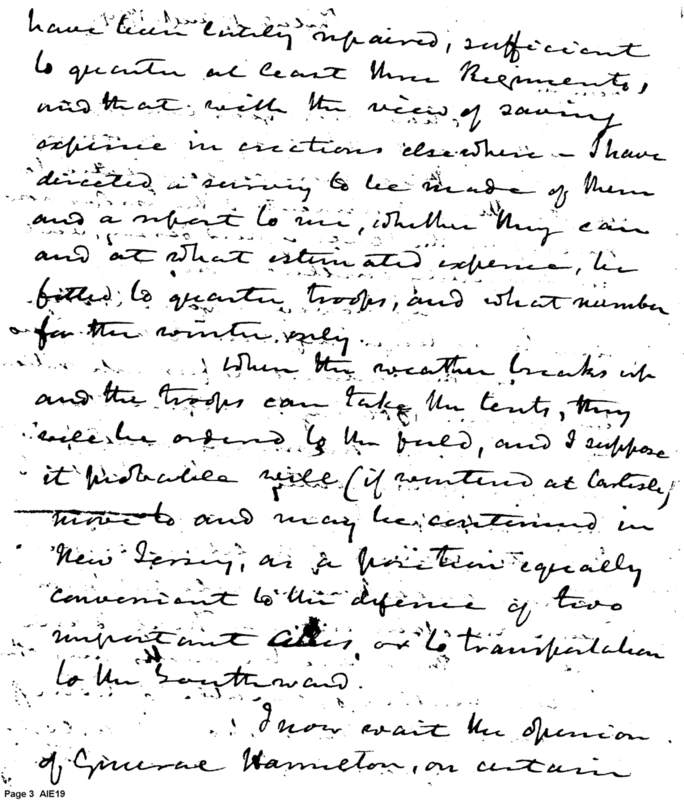 have been lately repaired, sufficient
to quarter at least three Regiments,
and that with the view of saving
expense in erections elsewhere - I have
directed a survey to be made of them
and a report to me, whether they can
and at what estimated expense, be
fitted, to quarter troops, and what number
for the winter only.
When the weather breaks up
and the troops can take the tents, they
will be ordered to the field, and I suppose
it probable will (if wintered at Carlisle)
move to and may be continued in
New Jersey, as a position equally
convenient to the defence of two
important Cities, or to transportation
to the Southward.
I now wait the opinion
of General Hamilton, on certain
Page 3 AIE19